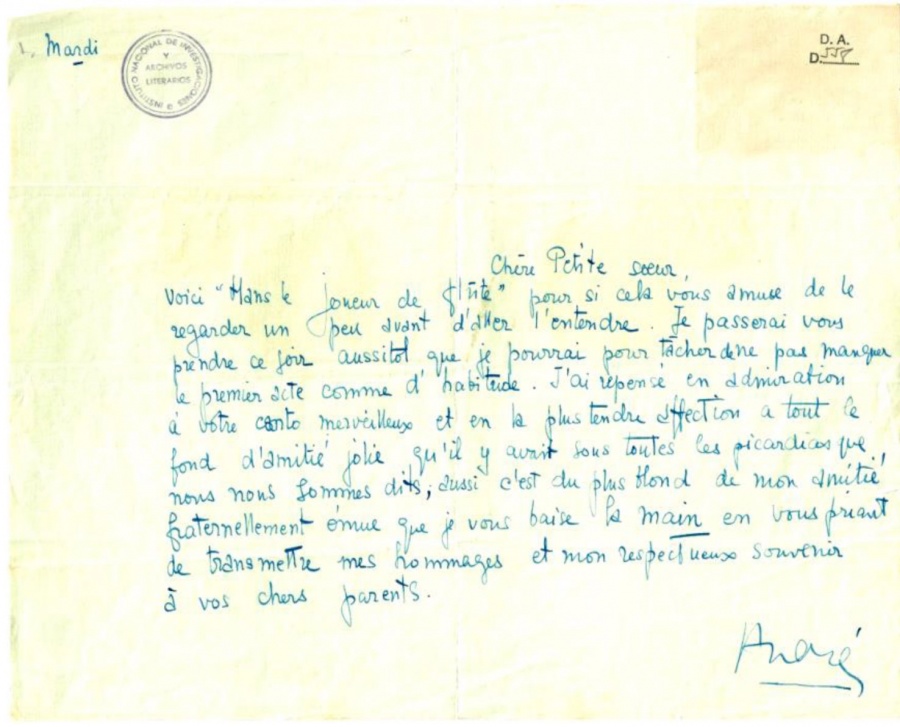 Mardi
INSTITUTO NACIONAL DE INVESTIGACIONES
Y
ARCHIVOS
LITERARIOS
D. A.
D. 558
Chère Petite sœur,
Voici "Hans le joueur de flûte" pour si cela vous amuse de le
regarder un peu avant d'aller l'entendre. Je passerai vous
prendre ce soir aussitot que je pourrai pour tâcher de ne pas manquer
le premier acte comme d'habitude. J'ai repensé en admiration
à votre canto merveilleux et en la plus tendre affection a tout le
fond d'amitié jolie qu'il y avait sous toutes les picardias que
nous nous sommes dits; aussi c'est du plus blond de mon amitié
fraternellement émue que je vous baise la main en vous priant
de transmettre mes hommages et mon respectueux souvenir
à vos chers parents.
André